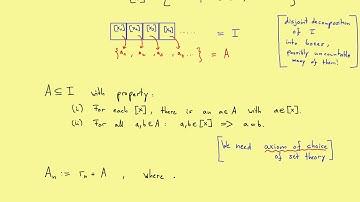 [x₁] [x₂] [x₃] [x₄] ..... = I
{ a₁ , a₂ , a₃ , a₄ , ... } = A
[ disjoint decomposition
of I
into boxes,
possibly uncountable
many of them! ]
A ⊆ I with property:
(1) For each [x], there is an a∈A with a∈[x].
(2) For all a,b∈A : a,b∈[x] => a=b.
[ We need axiom of choice
of set theory ]
Aₙ := rₙ + A , where .